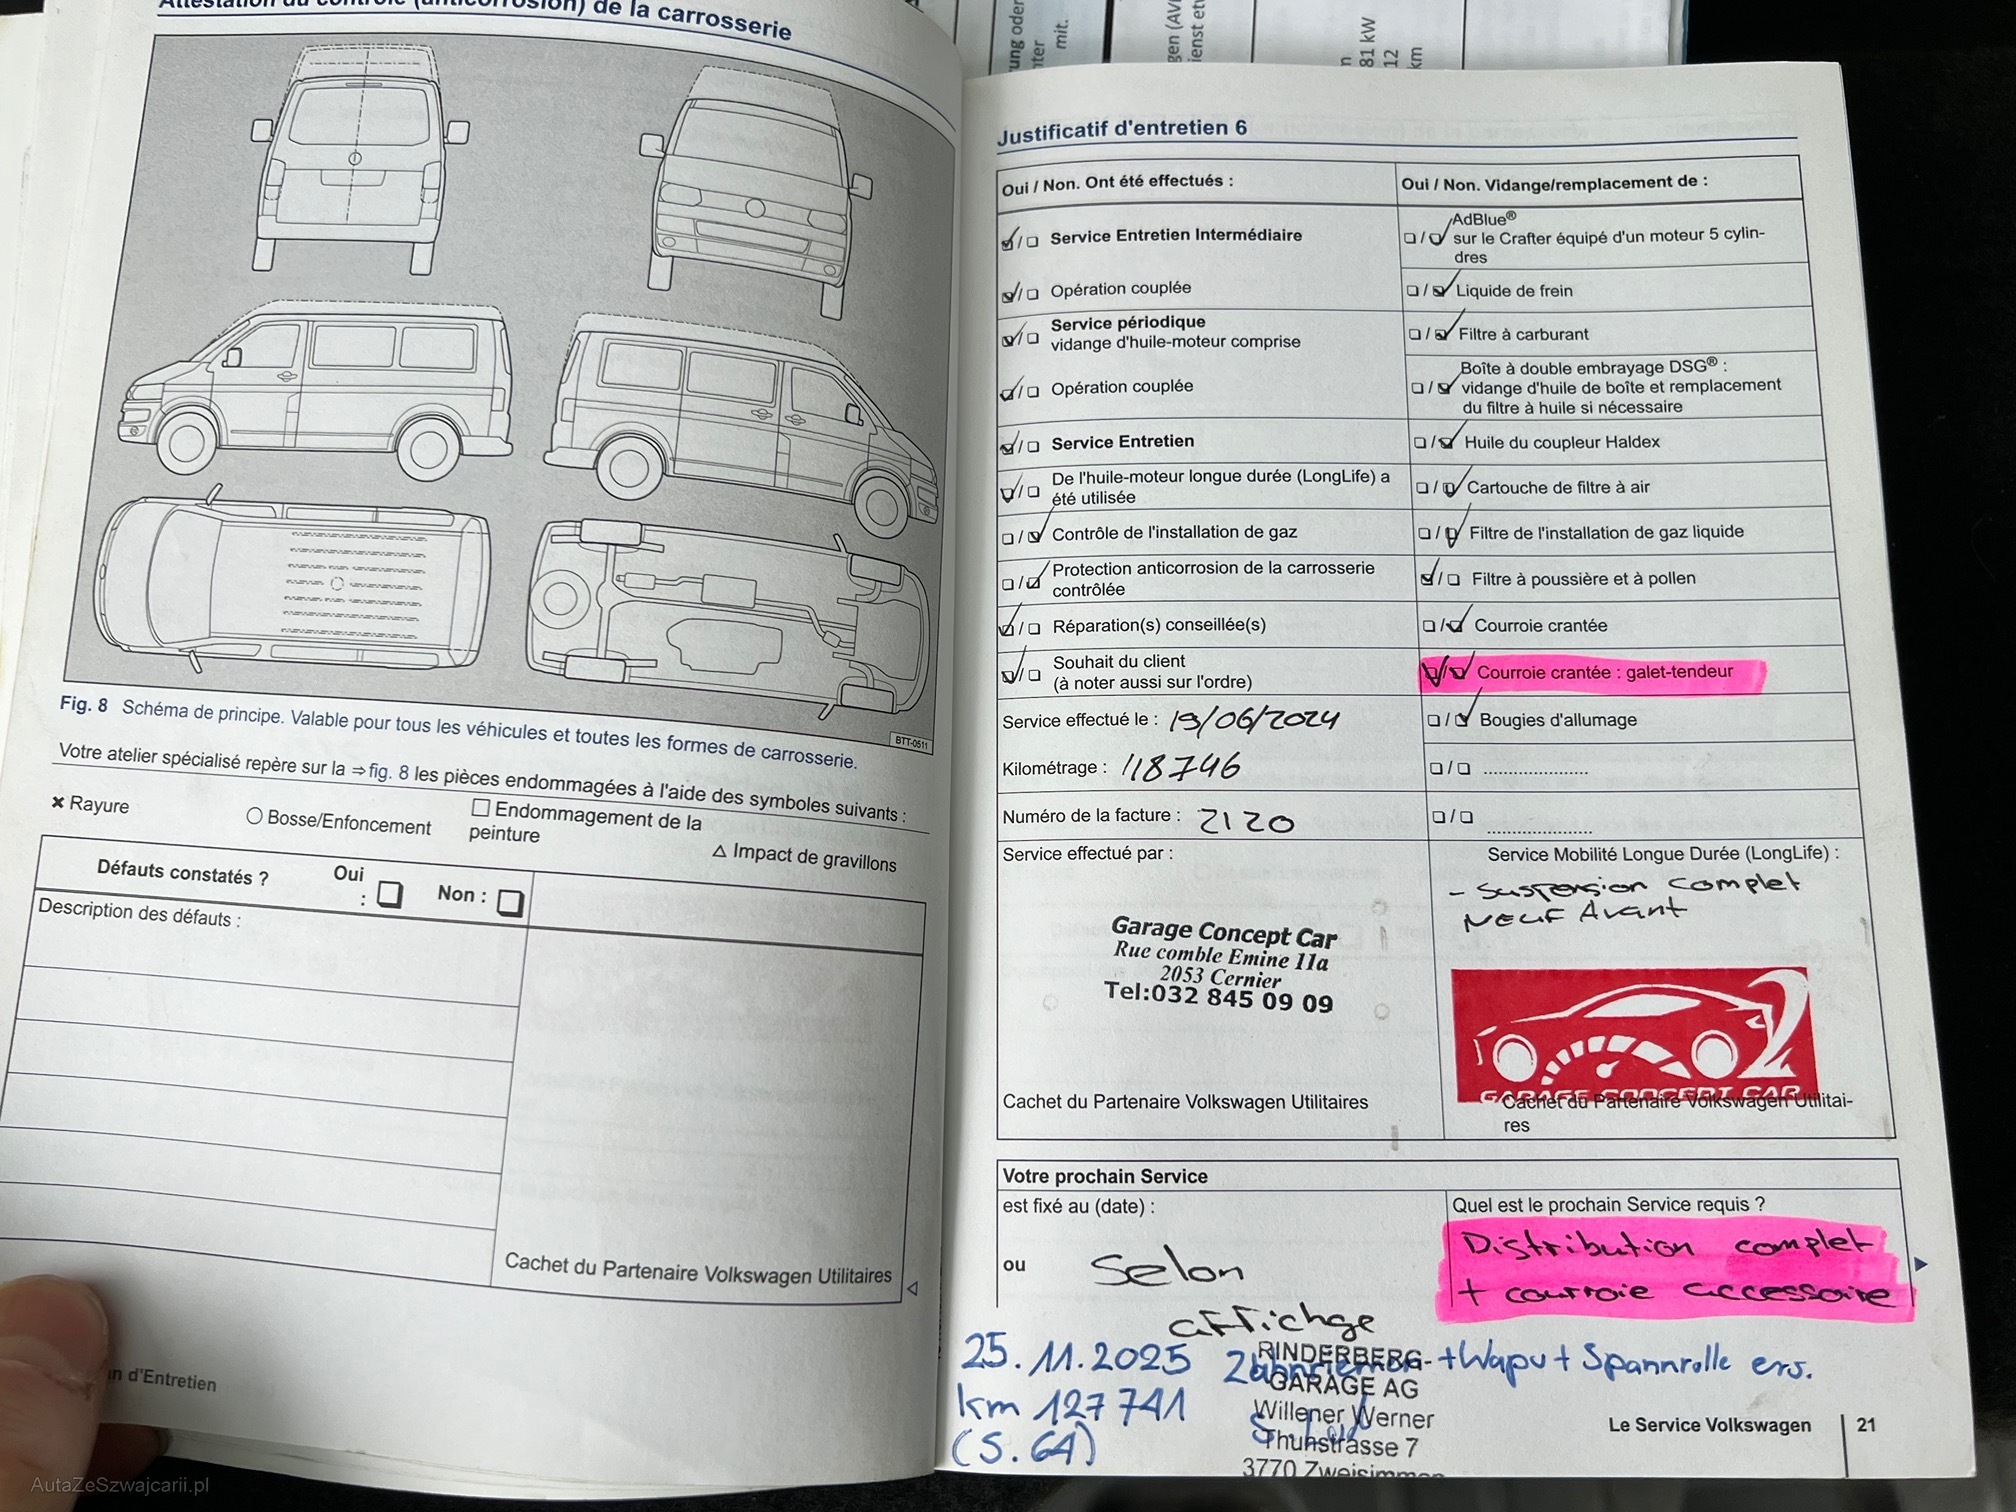 Attestation du contrôle (anticorrosion) de la carrosserie
BTT-0511
Fig. 8 Schéma de principe. Valable pour tous les véhicules et toutes les formes de carrosserie.
Votre atelier spécialisé repère sur la ⇒ fig. 8 les pièces endommagées à l'aide des symboles suivants :
× Rayure
○ Bosse/Enfoncement
□ Endommagement de la
peinture
△ Impact de gravillons
Défauts constatés ?
Oui
: □
Non : □
Description des défauts :
Cachet du Partenaire Volkswagen Utilitaires
n d'Entretien
AutaZeSzwajcarii.pl
rung oder
nter
mit.
gen (AV
ienst et
n
81 kW
12
km
Justificatif d'entretien 6
Oui / Non. Ont été effectués :
Service Entretien Intermédiaire
Opération couplée
Service périodique
vidange d'huile-moteur comprise
Opération couplée
Service Entretien
De l'huile-moteur longue durée (LongLife) a
été utilisée
Contrôle de l'installation de gaz
Protection anticorrosion de la carrosserie
contrôlée
Réparation(s) conseillée(s)
Souhait du client
(à noter aussi sur l'ordre)
Service effectué le : 19/06/2024
Kilométrage : 118746
Numéro de la facture : 2120
Oui / Non. Vidange/remplacement de :
AdBlue®
sur le Crafter équipé d'un moteur 5 cylin-
dres
Liquide de frein
Filtre à carburant
Boîte à double embrayage DSG® :
vidange d'huile de boîte et remplacement
du filtre à huile si nécessaire
Huile du coupleur Haldex
Cartouche de filtre à air
Filtre de l'installation de gaz liquide
Filtre à poussière et à pollen
Courroie crantée
Courroie crantée : galet-tendeur
Bougies d'allumage
□ / □ .....................
□ / □ .....................
Service effectué par :
Garage Concept Car
Rue comble Emine 11a
2053 Cernier
Tel:032 845 09 09
Cachet du Partenaire Volkswagen Utilitaires
Service Mobilité Longue Durée (LongLife) :
- suspension complet
Neuf Avant
GARAGE CONCEPT CAR
Cachet du Partenaire Volkswagen Utilitai-
res
Votre prochain Service
est fixé au (date) :
ou
Selon
affichge
Quel est le prochain Service requis ?
Distribution complet
+ courroie accessoire
25.11.2025 Zahnriemen +Wapu + Spannrolle ers.
km 127741
(S. 64)
RINDERBERG-
GARAGE AG
Willener Werner
Thunstrasse 7
3770 Zweisimmen
Le Service Volkswagen
21